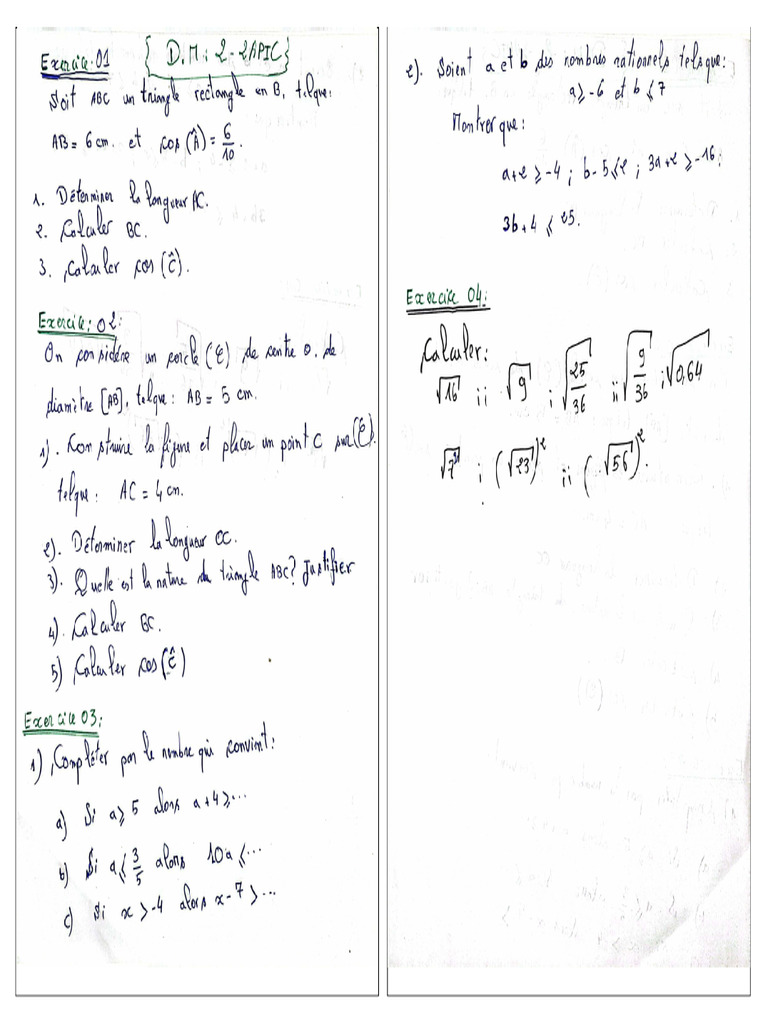 { D.M : 2-2APIC }
Exercice 01
Soit ABC un triangle rectangle en B, telque:
AB = 6 cm. et cos(Â) = 6/10.
1. Déterminer la longueur AC.
2. Calculer BC.
3. Calculer cos(Ĉ).
Exercice: 02:
On considère un cercle (C) de centre O. de
diamètre [AB], telque: AB = 5 cm.
1). Construire la figure et placer un point C sur (C).
telque: AC = 4 cm.
2). Déterminer la longueur OC.
3). Quelle est la nature du triangle ABC? Justifier
4). Calculer BC.
5) Calculer cos(Ĉ)
Exercice 03:
1) Compléter par le nombre qui convint:
a) Si a ⩾ 5 alors a+4 ⩾ ...
b) Si a ⩽ 3/5 alors 10a ⩽ ...
c) Si x > -4 alors x-7 > ...
2). Soient a et b des nombres rationnels tels que:
a ⩾ -6 et b ⩽ 7
Montrer que:
a+2 ⩾ -4 ; b-5 ⩽ 2 ; 3a+2 ⩾ -16;
3b+4 ⩽ 25.
Exercice 04:
Calculer:
√16 ;; √9 ; √(25/36) ;; √(9/36) ; √0,64
√7² ; (√23)² ;; (-√56)².